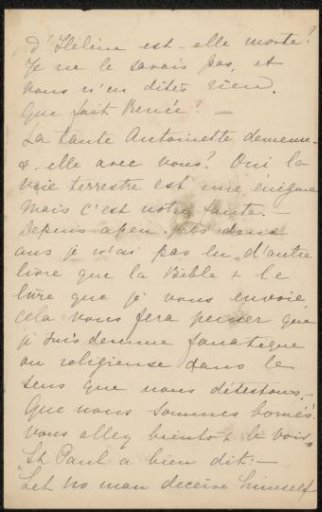 d'Hélène est-elle morte?
Je ne le savais pas, et
vous n'en dites rien.
Que fait Renée? —
La tante Antoinette demeure-
t-elle avec vous? Oui la
voie terrestre est une énigme
mais c'est notre faute. —
Depuis à peu près deux
ans je n'ai pas lu d'autre
livre que la Bible & le
livre que je vous envoie,
cela vous fera penser que
je suis devenue fanatique
ou religieuse dans le
sens que nous détestons. —
Que nous sommes bornés
vous allez bientôt le voir.
St Paul a bien dit: —
"Let no man deceive himself